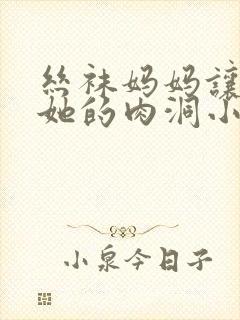 丝袜妈妈讓
她的肉洞小
小泉今日子